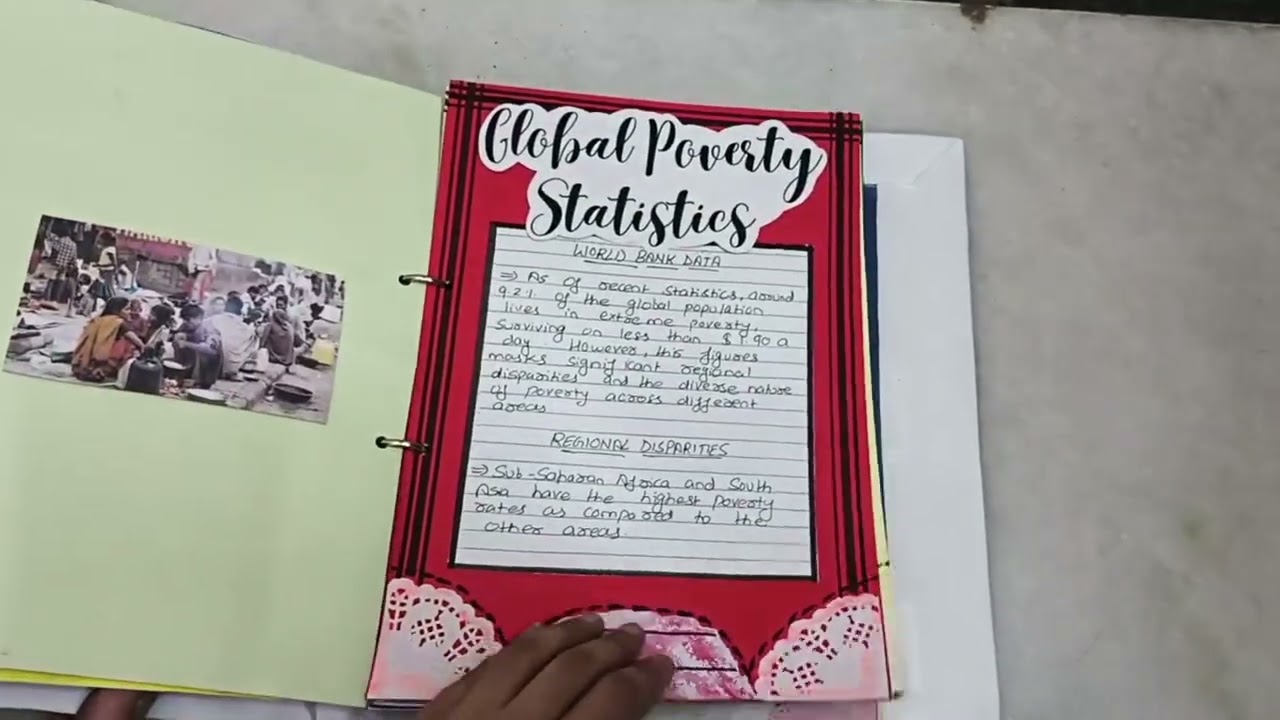 Global Poverty
Statistics
WORLD BANK DATA
⇒ As of recent statistics, around
9.2% of the global population
lives in extreme poverty,
surviving on less than $1.90 a
day. However, this figures
masks significant regional
disparities and the diverse nature
of poverty across different
areas
REGIONAL DISPARITIES
⇒ Sub-Saharan Africa and South
Asia have the highest poverty
rates as compared to the
other areas.